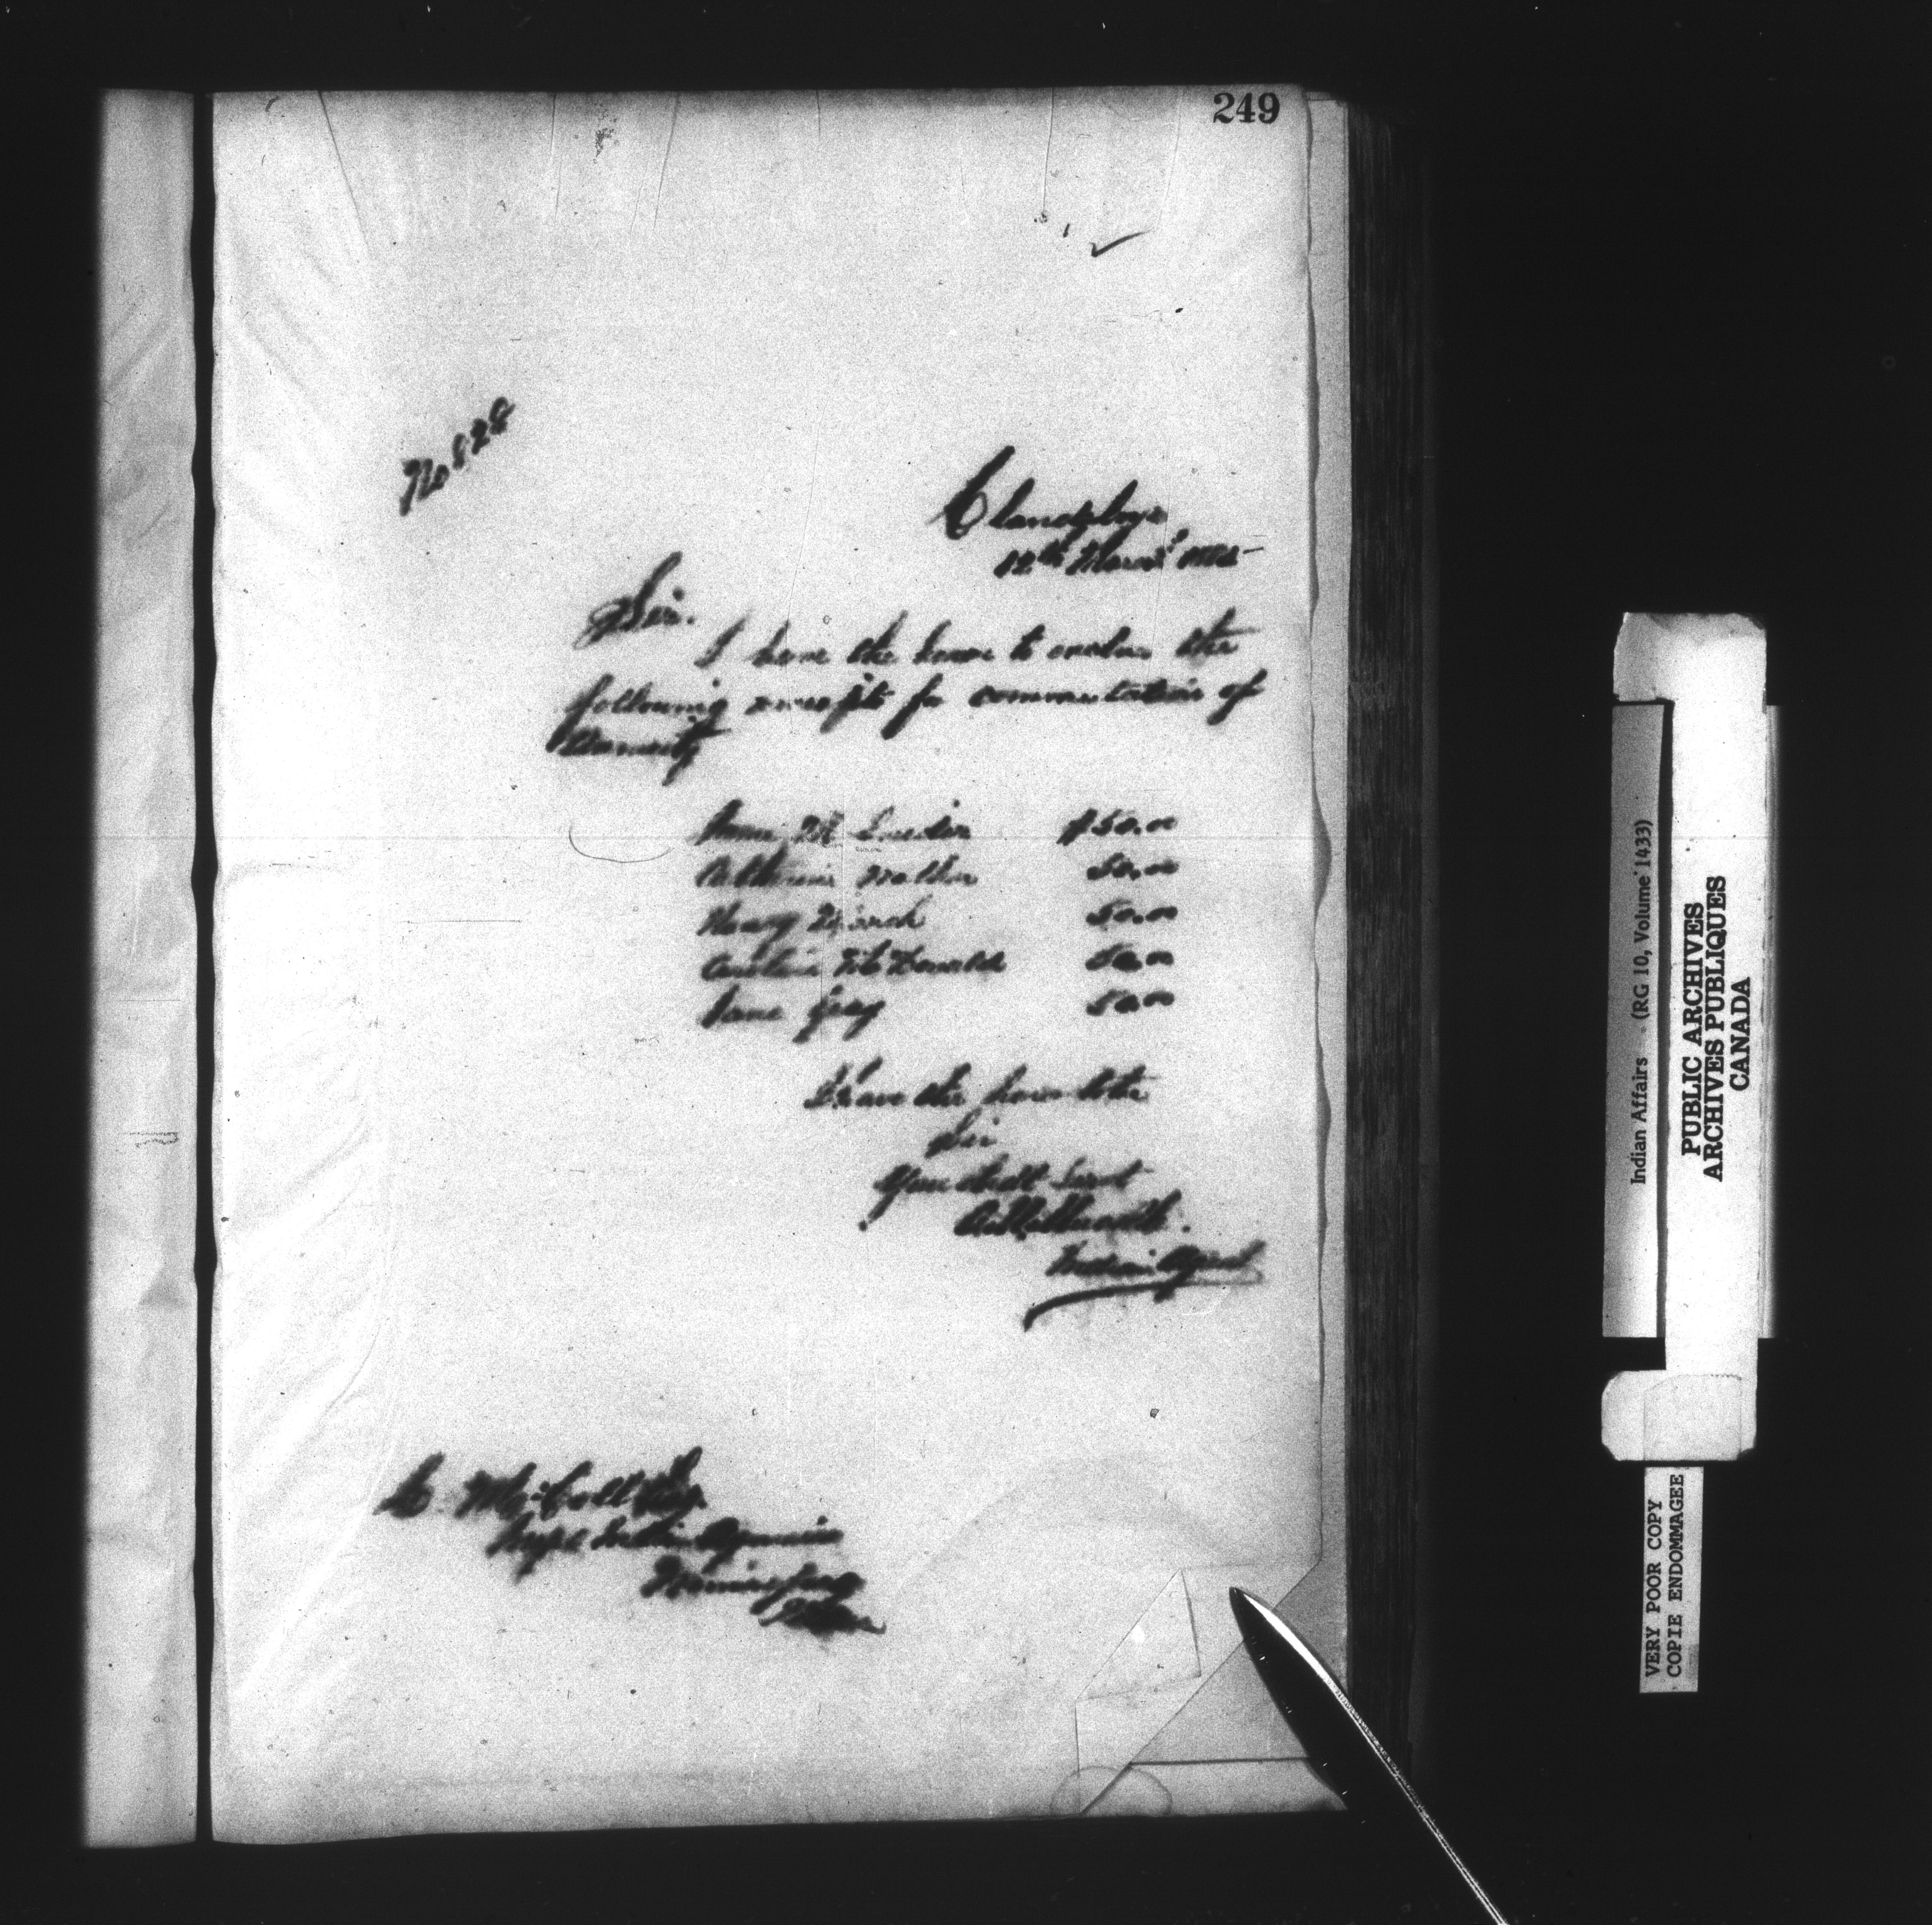 249
No 828
Clandeboye
12th March
Sir.
I have the honor to enclose the
following receipts for commutation of
Annuity
$50.00
Catherine 50.00
Henry 50.00
50.00
Jane Grey 50.00
I have the honor to be
Sir
Your Obdt Servt
Indian Agent
E. McColl Esq.
Supt Indian Agencies
Winnipeg
Indian Affairs (RG 10, Volume 1433)
PUBLIC ARCHIVES
ARCHIVES PUBLIQUES
CANADA
VERY POOR COPY
COPIE ENDOMMAGEE